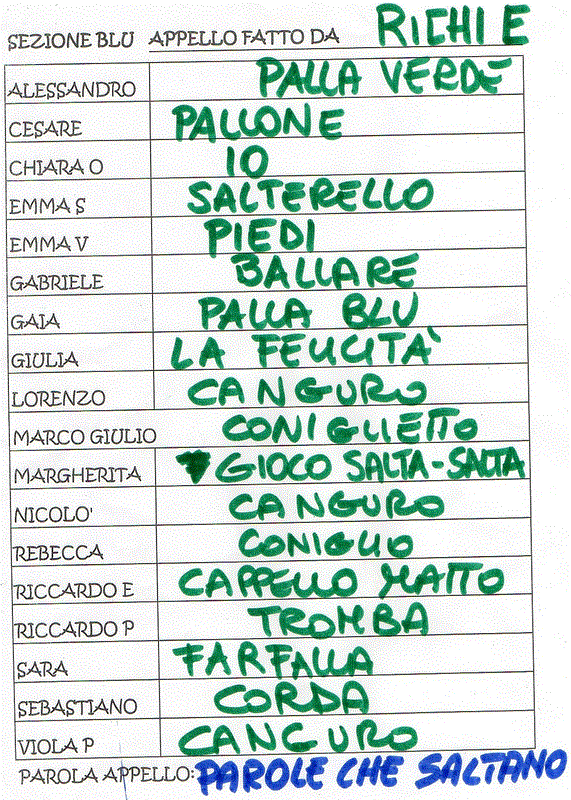 SEZIONE BLU APPELLO FATTO DA RICHI E
ALESSANDRO PALLA VERDE
CESARE PALLONE
CHIARA O IO
EMMA S SALTERELLO
EMMA V PIEDI
GABRIELE BALLARE
GAIA PALLA BLU
GIULIA LA FELICITA'
LORENZO CANGURO
MARCO GIULIO CONIGLIETTO
MARGHERITA GIOCO SALTA-SALTA
NICOLO' CANGURO
REBECCA CONIGLIO
RICCARDO E CAPPELLO MATTO
RICCARDO P TROMBA
SARA FARFALLA
SEBASTIANO CORDA
VIOLA P CANGURO
PAROLA APPELLO: PAROLE CHE SALTANO